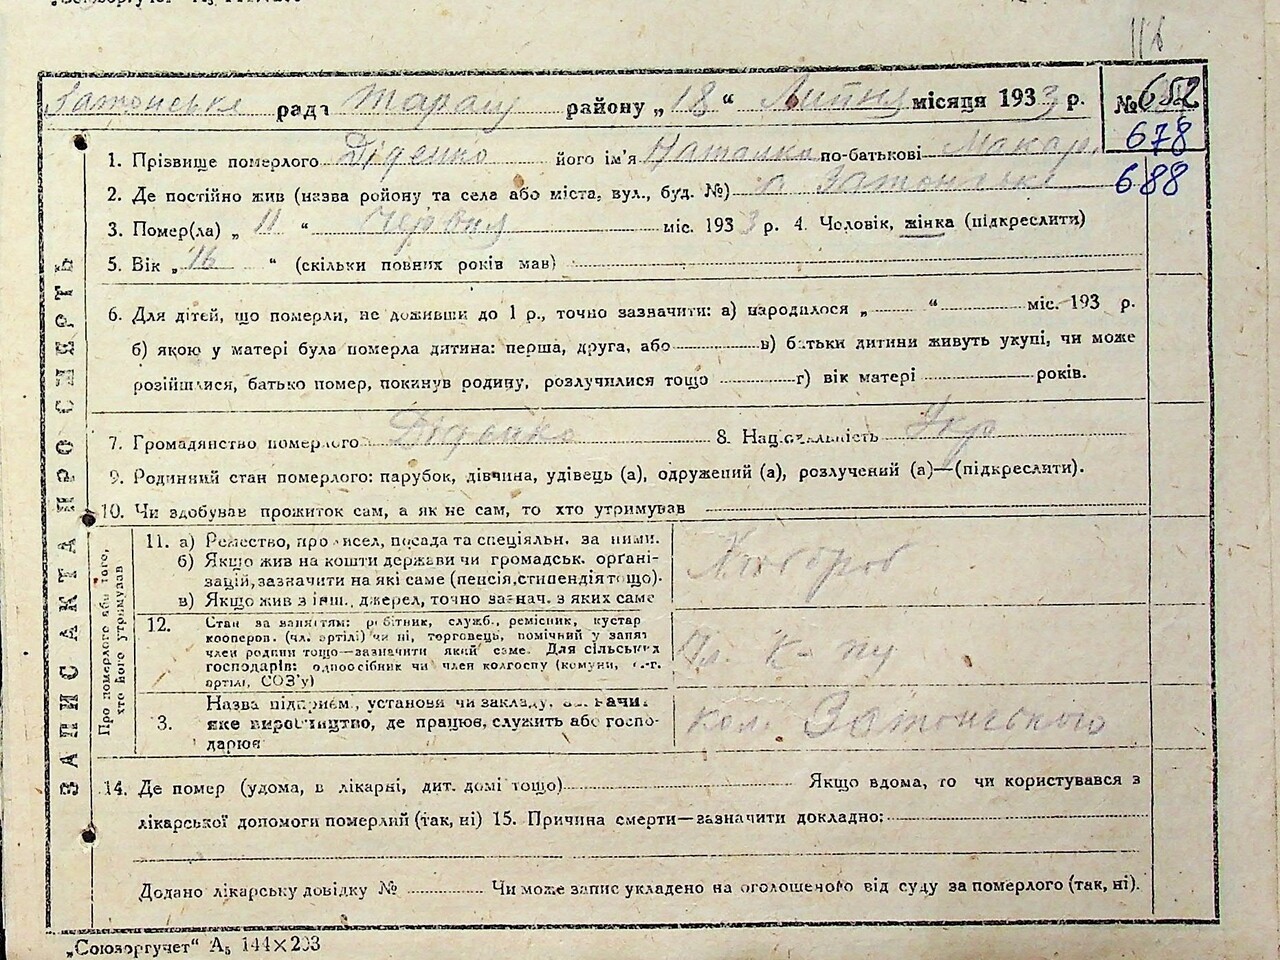 118
Затонське рада Тараш району „ 18 “ Липня місяця 1933 р. № 652
678
688
ЗАПИС АКТА ПРО СМЕРТЬ
1. Прізвище померлого Діденко його ім'я Наталка по-батькові Макар.
2. Де постійно жив (назва ройону та села або міста, вул., буд. №) Затонське
3. Помер(ла) „ 11 “ Червня міс. 1933 р. 4. Чоловік, жінка (підкреслити)
5. Вік „ 16 “ (скільки повних років мав)
6. Для дітей, що померли, не доживши до 1 р., точно зазначити: а) народилося „ “ міс. 193 р.
б) якою у матері була померла дитина: перша, друга, або в) батьки дитини живуть укупі, чи може
розійшлися, батько помер, покинув родину, розлучилися тощо г) вік матері років.
7. Громадянство померлого Діденко 8. Національність Укр
9. Родинний стан померлого: парубок, дівчина, удівець (а), одружений (а), розлучений (а)—(підкреслити).
10. Чи здобував прожиток сам, а як не сам, то хто утримував
Про померлого або того, хто його утримував
11. а) Ремество, промисел, посада та спеціяльн. за ними.
б) Якщо жив на кошти держави чи громадськ. орґані-
зацій, зазначити на які саме (пенсія, стипендія тощо).
в) Якщо жив з інш. джерел, точно зазнач. з яких саме
Хлібороб
12. Стан за заняттям: робітник, служб., ремісник, кустар
кооперов. (чл. артілі) чи ні, торговець, помічний у занят
член родини тощо—зазначити який саме. Для сільських
господарів: одноосібник чи член колгоспу (комуни, с.-г.
артілі, СОЗ'у)
Чл. к-пу
3. Назва підприєм., установи чи закладу, зазначи
яке виробництво, де працює, служить або госпо-
дарює
кол. Затонського
14. Де помер (удома, в лікарні, дит. домі тощо) Якщо вдома, то чи користувався з
лікарської допомоги померлий (так, ні) 15. Причина смерти—зазначити докладно:
Додано лікарську довідку № Чи може запис укладено на оголошеного від суду за померлого (так, ні).
„Союзоргучет“ А₅ 144×203